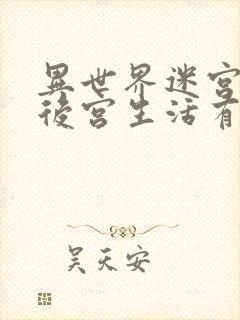 異世界迷宮
後宮生活有
吴天安